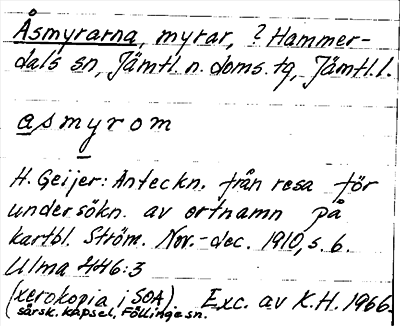 Åsmyrarna, myrar, ? Hammer-
dals sn, Jämtl. n. doms. tg, Jämtl. l.
asmyrom
H. Geijer: Anteckn. från resa för
undersökn. av ortnamn på
kartbl. Ström. Nov.-dec. 1910, s. 6.
Ulma 446:3
(xerokopia i SOA). Exc. av K.H. 1966.
särsk. kapsel, Föllinge sn.